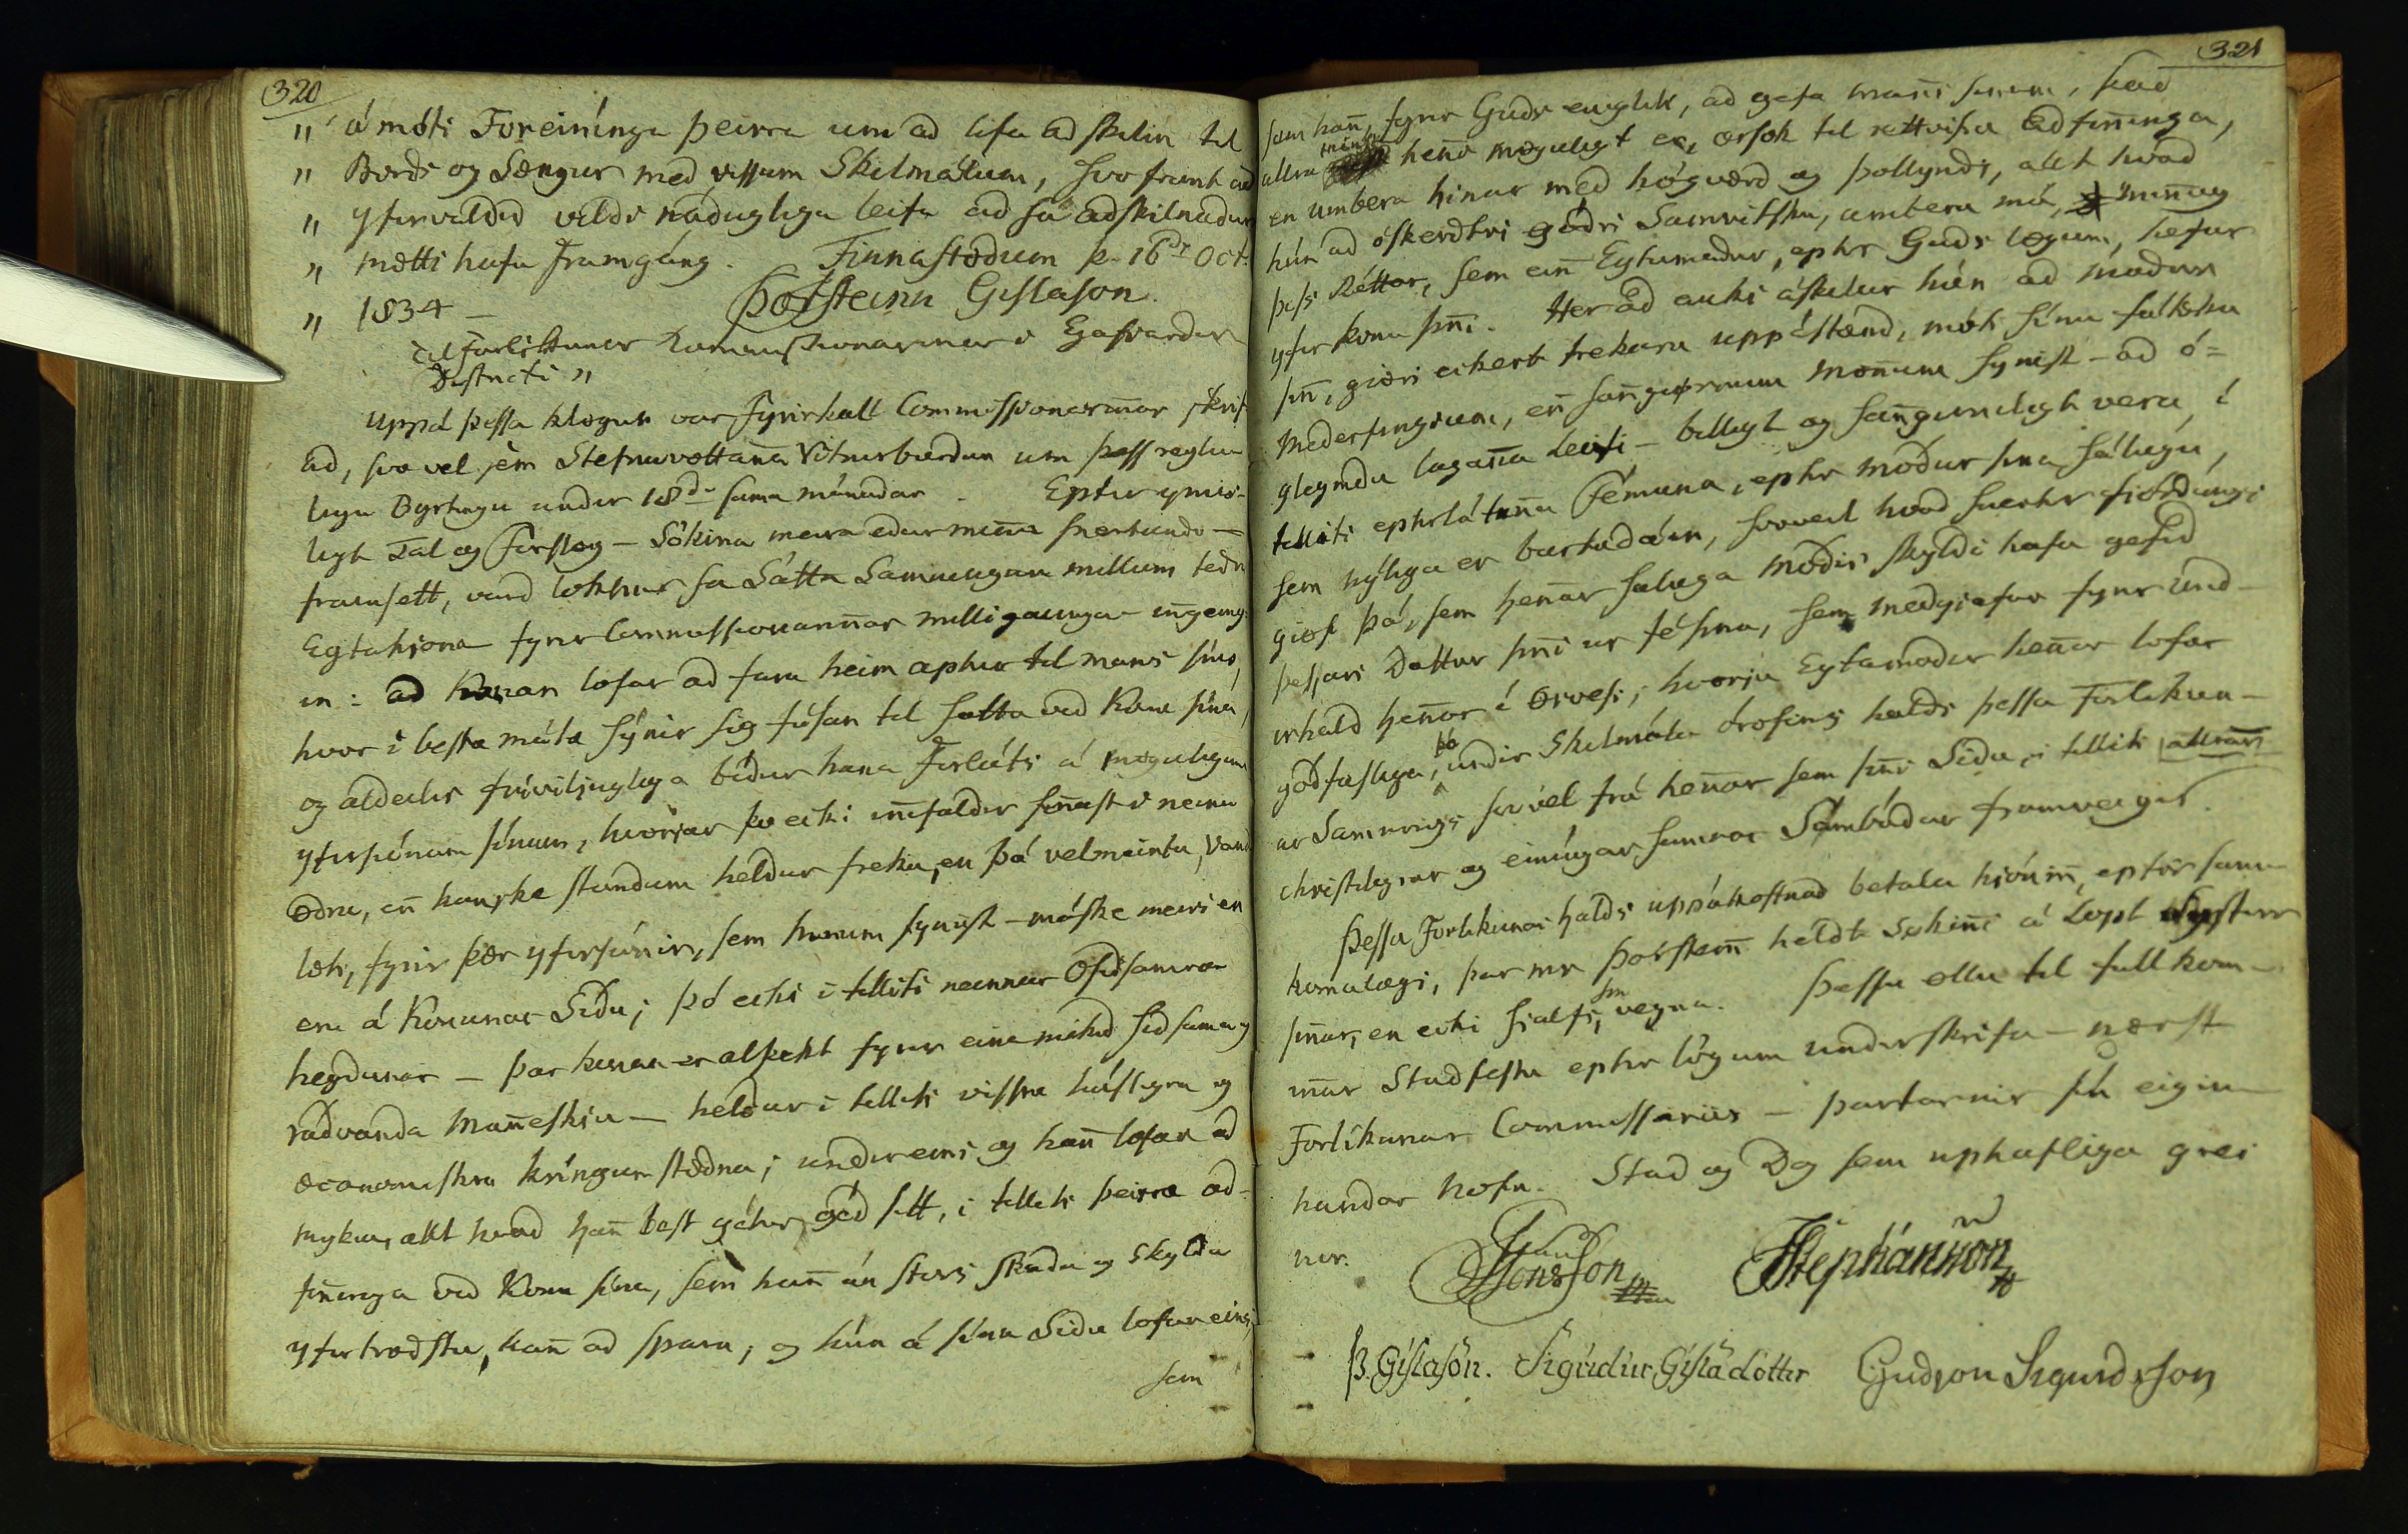 320
„ á móti Foreiníngu þeirra um ad lifa adskilin til
„ Bords og Sængur med vissum Skilmálum, svo framt ad
„ yfirvaldid vildi nádugliga leifa ad sá adskilnadur
„ mætti hafa framgáng. Finnastödum þ. 16da Oct.
„ 1834 — Þorsteinn Gislason.
Til Forlíkunar Commissionarinnar i Eyafiardar
District „
Uppá þessa klögun var Fyrirkall Commissionarinnar skrif-
ad, svo vel sem Stefnuvottanna Vitnisburdur um þess reglu-
lega Byrtingu undir 18da sama mánadar. Eptir ymis-
legt Tal og Forslög — Sökina meira edur minna snertandi —
framsett, vard lokkins sá Sátta Samningur millum tedra
Egtahjóna fyrir Commissionarinnar milligaungu inngeng-
in: ad konan lofar ad fara heim aptur til manns síns,
hvor i besta máta sýnir sig fúsan til sátta vid konu sína,
og aldeilis fríviljuglega bidur hana Forláts á mögulegum
yfirsjónum sínum, hvorjar þo ecki innfaldir finnast i neinu
ödru, enn kanske stundum heldur freku, en þá velmeintu, vand-
læti, fyrir þær yfirsjónir, sem hönum synist — máske meiri en
eru á Konunnar Sídu; þó ecki i tilliti neinnar Ósidsamrar
hegdunar — þar konan er alþekt fyrir eina mikid sidsama og
rádvanda Manneskju — heldur i tilliti vissra húslegra og
œconomiskra kríngumstædna; undireins og hann lofar ad
mykja, allt hvad hann best getur, géd sitt, i tilliti þeirra ad-
finninga vid Konu sína, sem hann án stórs skada og Skyldu
yfirtrædslu, kann ad spara; og hún á sína Sidu lofar eins,
sem
321
sem hann, fyrir Guds auglit, ad gefa manni sínum, svad
allra minst henni mögulegt er, orsök til rettvísra Adfinninga,
en umbera hinar med hógværd og þollyndi, allt hvad
hún ad óskerdtri gódri Samvitsku, umbera má, minnug
þess Réttar, sem einn Egtamadur, eptir Guds lögum, hefur
yfir konu sinni. Her ad auki áskilur hún ad madur
sinn, gjöri eckert frekara uppástand, móti sínu fólki
Mederfingjum, enn sanngjörnum mönnum synist — ad ó=
gleymdu laganna Leifi — billegt og sanngirnilegt vera, i
tilliti eptirlátinna Fémuna, eptir modur sína sálugu,
sem nýliga er burtudáin, svoveil hvad snertir fjórdungs
giöf þá, sem hennar saluga módir skyldi hafa gefid
þessari Dottur sinni ur fé sínu, sem medgjafar fyrir und-
irhald hennar i Örvesi; hvorju Egtamadur hennar lofar
gódfúslega, þó undir Skilmála órofins halds þessa Forlíkun-
ar Samnings svo vel frá hennar sem sinni Sidu, i tilliti allrar
christelegrar og einúgar samrar Sambúdar framveigis.
Þessa Forlikunar halds uppákostnad betala hjónin, eptir sam-
komulægi, þar mr Þorsteinn heldt sökinni á Lopt Systur
sinnar, en ecki sjalfs sín vegna. Þessu ollu til fullkom-
innar Stadfestu eptir lögum undirskrifa — næst
Forlíkunar Commissariis — partarnir sín eigin
handar nöfn. Stad og Dag sem uphafliga grei-
nir.
Jonsson
Stephánsson
Þ. Gíslasón. Sigrídur Gíslādóttir Gudjon Sigurdsson